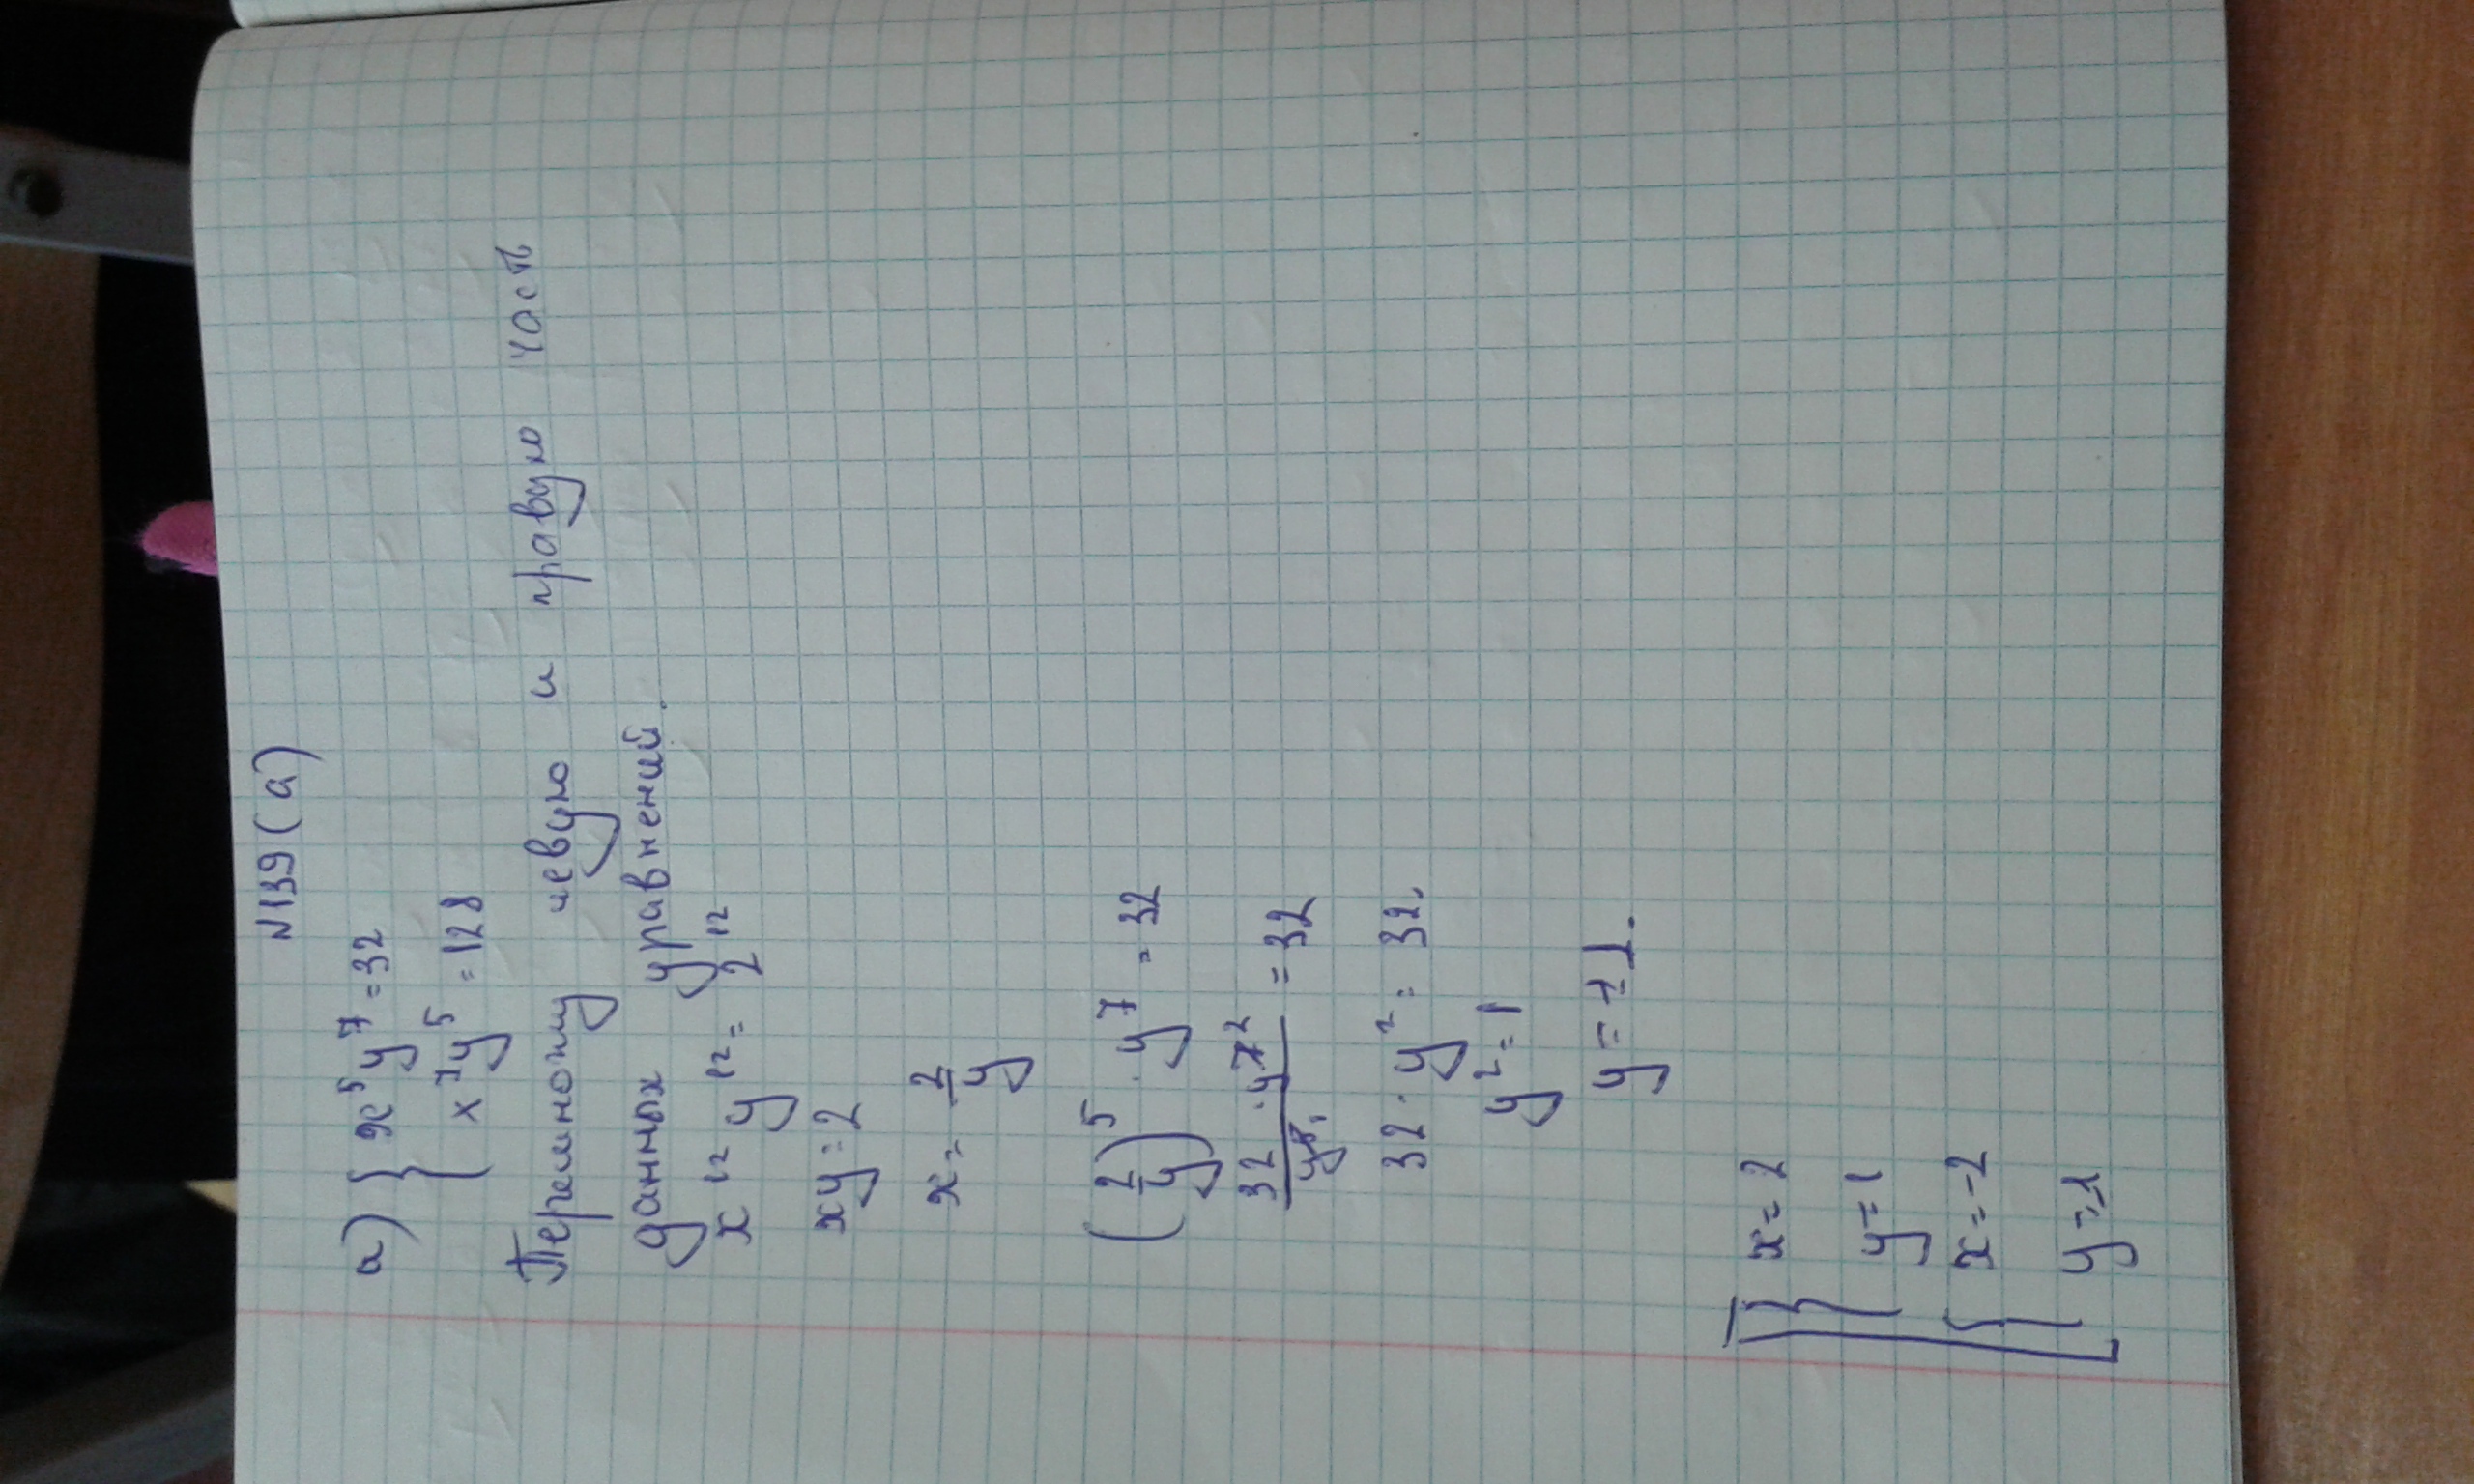 N139(a)
a) { x⁵y⁷=32
{ x⁷y⁵=128
Перемножим левую и правую часть
данных уравнений.
x¹² y¹² = 2¹²
xy=2
x= 2/y
(2/y)⁵ · y⁷ = 32
32 · y⁷ ² / y⁵ ₁ = 32
32 · y² = 32
y²=1
y=±1.
[ { x=2
y=1
{ x=-2
y=-1